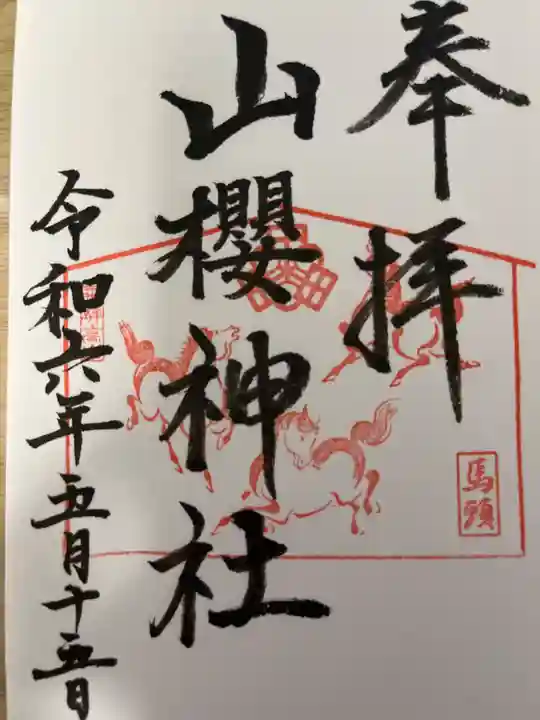 奉拝
山櫻神社
馬頭
令和六年五月十五日